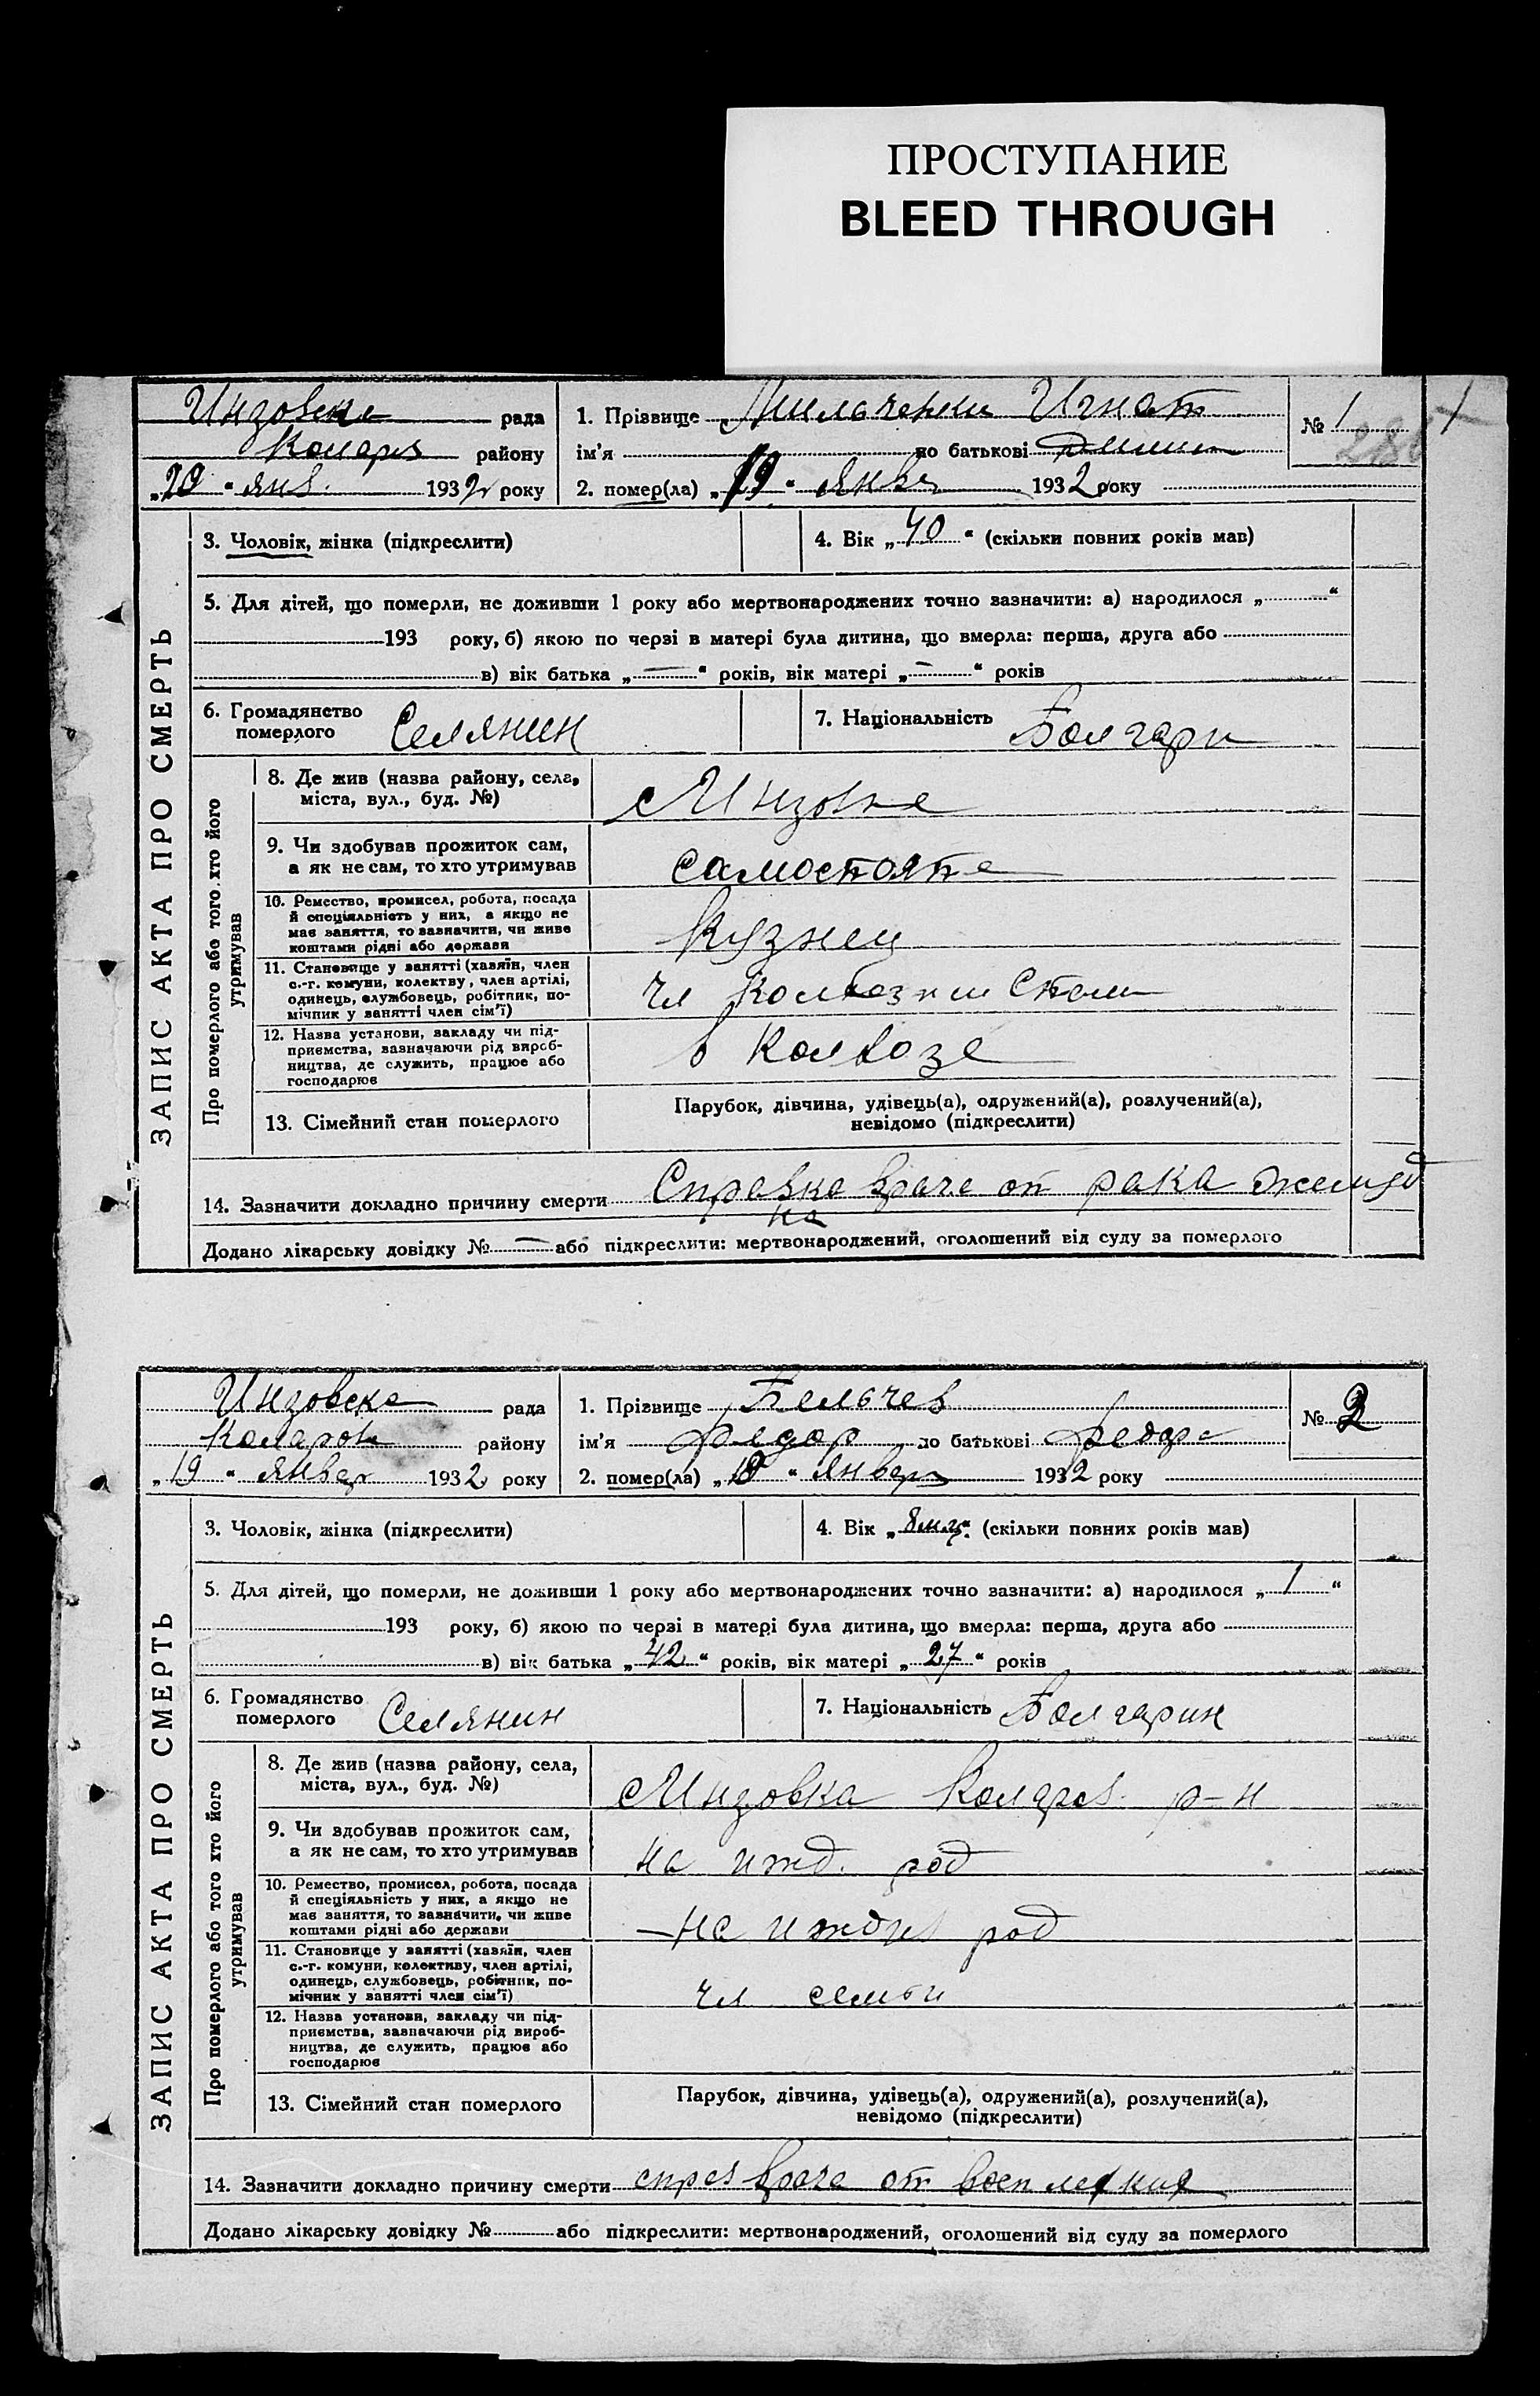 ПРОСТУПАНИЕ
BLEED THROUGH
Инзовска рада
Колар района
„20“ янв. 1932 року
1. Прізвище Мильчев Игнат
ім’я по батькові
2. помер(ла) „19“ Янва 1932 року
№ 1
ЗАПИС АКТА ПРО СМЕРТЬ
3. Чоловік, жінка (підкреслити)
4. Вік „40“ (скільки повних років мав)
5. Для дітей, що померли, не доживши 1 року або мертвонароджених точно зазначити: а) народилося „ “
193 року, б) якою по черзі в матері була дитина, що вмерла: перша, друга або
в) вік батька „—“ років, вік матері „—“ років
6. Громадянство
померлого Селянин
7. Національність Болгари
Про померлого або того хто його
утримував
8. Де жив (назва району, села,
міста, вул., буд. №)
с Инзовке
9. Чи здобував прожиток сам,
а як не сам, то хто утримував
самостояте
10. Ремество, промисел, робота, посада
й спеціяльність у них, а якщо не
має заняття, то зазначити, чи живе
коштами рідні або держави
Кузнец
11. Становище у занятті (хазяїн, член
с.-г. комуни, колектву, член артілі,
одинець, службовець, робітник, по-
мічник у занятті член сім’ї)
чл колхоз
12. Назва установи, закладу чи під-
приємства, зазначаючи рід вироб-
ництва, де служить, працює або
господарює
в Колхозе
13. Сімейний стан померлого
Парубок, дівчина, удівець(а), одружений(а), розлучений(а),
невідомо (підкреслити)
14. Зазначити докладно причину смерти Справка врача от рака желуд
ка
Додано лікарську довідку № — або підкреслити: мертвонароджений, оголошений від суду за померлого
Инзовска рада
Коларов району
„19“ январ 1932 року
1. Прізвище Бельчев
ім’я Федор по батькові Федор
2. помер(ла) „18“ Январ 1932 року
№ 2
ЗАПИС АКТА ПРО СМЕРТЬ
3. Чоловік, жінка (підкреслити)
4. Вік „8 мц“ (скільки повних років мав)
5. Для дітей, що померли, не доживши 1 року або мертвонароджених точно зазначити: а) народилося „1“
193 року, б) якою по черзі в матері була дитина, що вмерла: перша, друга або
в) вік батька „42“ років, вік матері „27“ років
6. Громадянство
померлого Селянин
7. Національність Болгарин
Про померлого або того хто його
утримував
8. Де жив (назва району, села,
міста, вул., буд. №)
с Инзовка Коларов. р-н
9. Чи здобував прожиток сам,
а як не сам, то хто утримував
на ижд. род
10. Ремество, промисел, робота, посада
й спеціяльність у них, а якщо не
має заняття, то зазначити, чи живе
коштами рідні або держави
на иждив род
11. Становище у занятті (хазяїн, член
с.-г. комуни, колективу, член артілі,
одинець, службовець, робітник, по-
мічник у занятті член сім’ї)
чл семьи
12. Назва установи, закладу чи під-
приємства, зазначаючи рід вироб-
ництва, де служить, працює або
господарює
13. Сімейний стан померлого
Парубок, дівчина, удівець(а), одружений(а), розлучений(а),
невідомо (підкреслити)
14. Зазначити докладно причину смерти справ врача от воспления
Додано лікарську довідку № або підкреслити: мертвонароджений, оголошений від суду за померлого